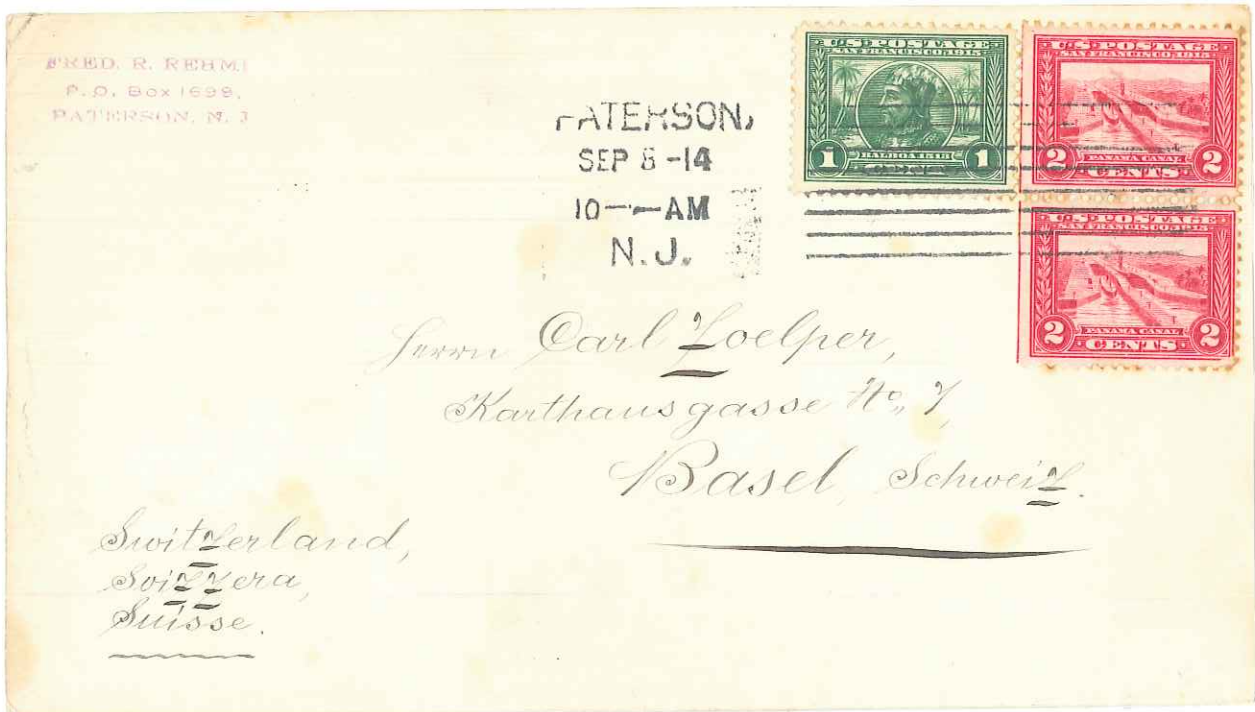 FRED. R. REHM
P.O. Box 1699,
PATERSON, N. J
PATERSON,
SEP 8 -14
10 — AM
N.J.
U·S·POSTAGE
SAN FRANCISCO 1915
1 BALBOA 1513 1
CENT
U·S·POSTAGE
SAN FRANCISCO 1915
2 PANAMA CANAL 2
CENTS
U·S·POSTAGE
SAN FRANCISCO 1915
2 PANAMA CANAL 2
CENTS
Herrn Carl Zoelper,
Karthausgasse No, 7,
Basel, Schweiz.
Switzerland,
Svizzera,
Suisse.